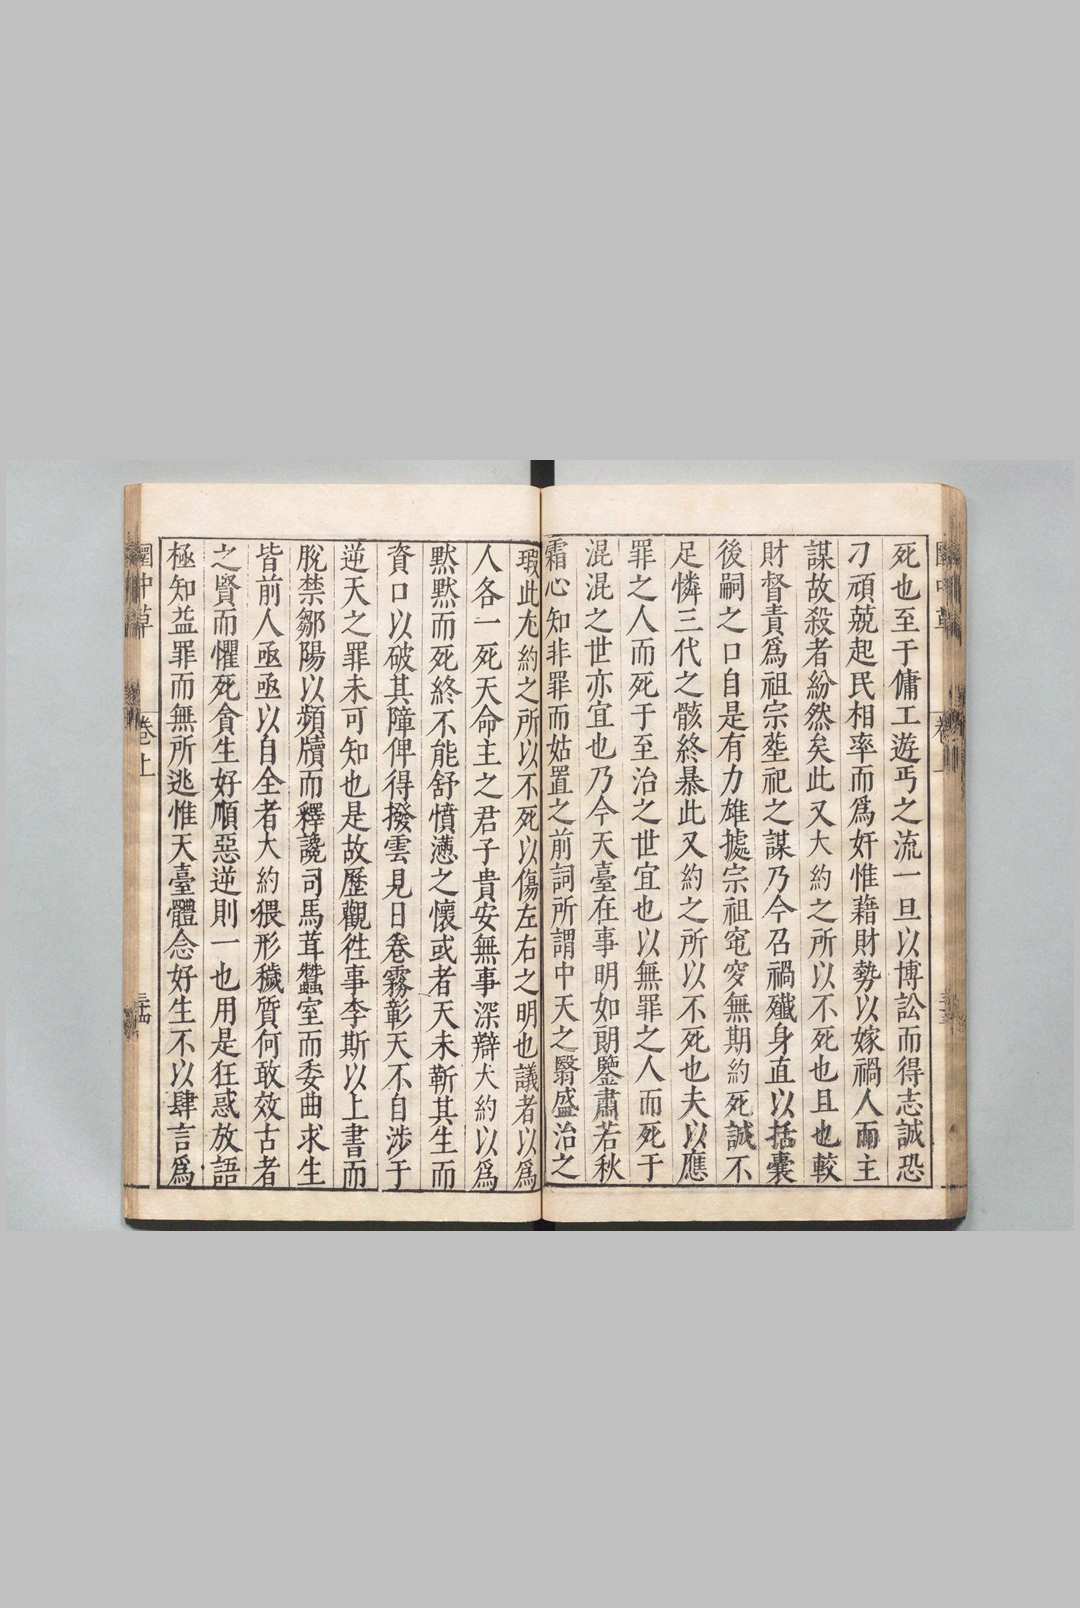 死也至于傭工遊丐之流一旦以博訟而得志誠恐
刁頑兢起民相率而爲奸惟藉財勢以嫁禍人而主
謀故殺者紛然矣此又大約之所以不死也且也較
財督責爲祖宗塟祀之謀乃今召禍殲身直以括囊
後嗣之口自是有力雄據宗祖窀穸無期約死誠不
足憐三代之骸終暴此又約之所以不死也夫以應
罪之人而死于至治之世宜也以無罪之人而死于
混混之世亦宜也乃今天臺在事明如朗鑒肅若秋
霜心知非罪而姑置之前詞所謂中天之翳盛治之
瑕此尤約之所以不死以傷左右之明也議者以爲
人各一死天命主之君子貴安無事深辯犬約以爲
黙黙而死終不能舒憤懣之懷或者天未靳其生而
資口以破其障俾得撥雲見日卷霧彰天不自涉于
逆天之罪未可知也是故歷觀徃事李斯以上書而
脫禁鄒陽以頻牘而釋讒司馬茸蠶室而委曲求生
皆前人亟亟以自全者大約猥形穢質何敢效古者
之賢而懼死貪生好順惡逆則一也用是狂惑放語
極知益罪而無所逃惟天臺體念好生不以肆言爲
圜中草
卷上